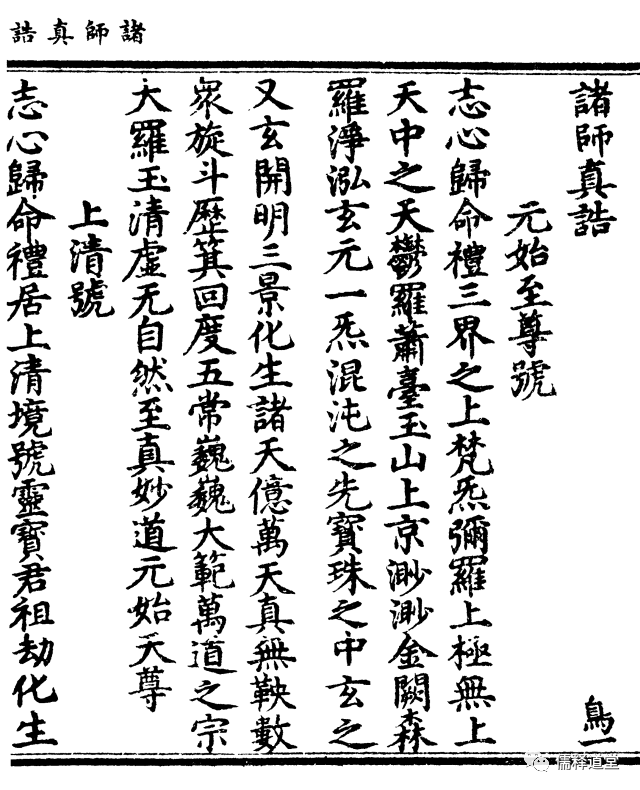 諸師真誥
諸師真誥 鳥一
元始至尊號
志心歸命禮三界之上梵炁彌羅上極無上
天中之天鬱羅蕭臺玉山上京渺渺金闕森
羅淨泓玄元一炁混沌之先寶珠之中玄之
又玄開明三景化生諸天億萬天真無鞅數
衆旋斗歷箕回度五常巍巍大範萬道之宗
大羅玉清虛无自然至真妙道元始天尊
上清號
志心歸命禮居上清境號靈寶君祖劫化生
儒释道堂